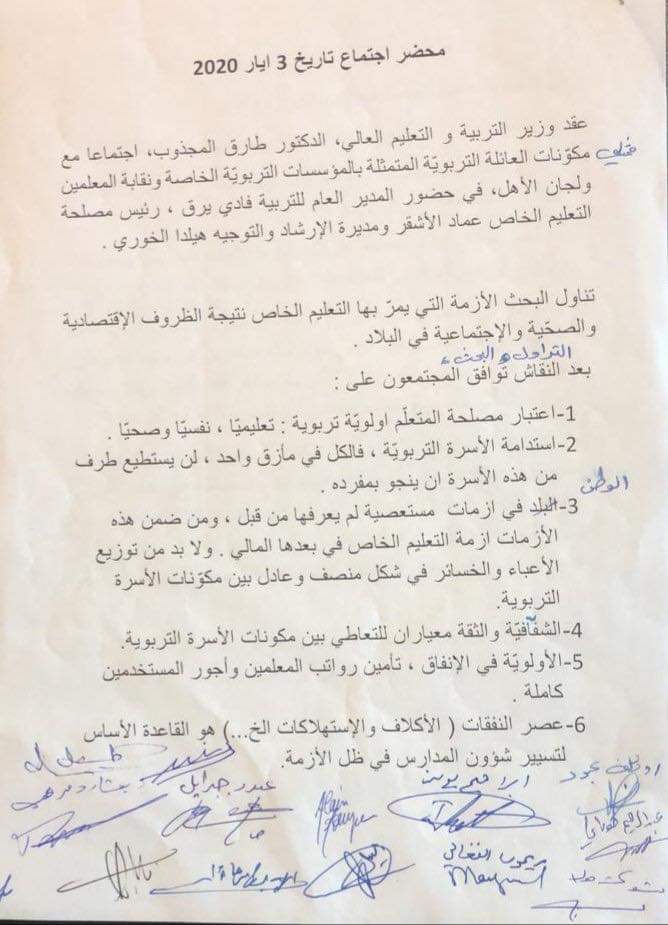 محضر اجتماع تاريخ 3 ايار 2020
عقد وزير التربية و التعليم العالي، الدكتور طارق المجذوب، اجتماعا مع
مختلف
مكوّنات العائلة التربويّة المتمثلة بالمؤسسات التربويّة الخاصة ونقابة المعلمين
ولجان الأهل، في حضور المدير العام للتربية فادي يرق ، رئيس مصلحة
التعليم الخاص عماد الأشقر ومديرة الإرشاد والتوجيه هيلدا الخوري .
تناول البحث الأزمة التي يمرّ بها التعليم الخاص نتيجة الظروف الإقتصادية
والصحّية والإجتماعية في البلاد .
التداول والبحث ،
بعد النقاش توافق المجتمعون على :
1-اعتبار مصلحة المتعلّم اولويّة تربوية : تعليميّا ، نفسيّا وصحيّا .
2-استدامة الأسرة التربويّة ، فالكل في مأزق واحد ، لن يستطيع طرف
من هذه الأسرة ان ينجو بمفرده .
الوطن
3-البلد في ازمات مستعصية لم يعرفها من قبل ، ومن ضمن هذه
الأزمات ازمة التعليم الخاص في بعدها المالي . ولا بد من توزيع
الأعباء والخسائر في شكل منصف وعادل بين مكوّنات الأسرة
التربوية.
4-الشفافيّة والثقة معياران للتعاطي بين مكونات الأسرة التربوية.
5-الأولويّة في الإنفاق ، تأمين رواتب المعلمين وأجور المستخدمين
كاملة .
6-عصر النفقات ( الأكلاف والإستهلاكات الخ...) هو القاعدة الأساس
لتسيير شؤون المدارس في ظل الأزمة.
عبدو جبرايل